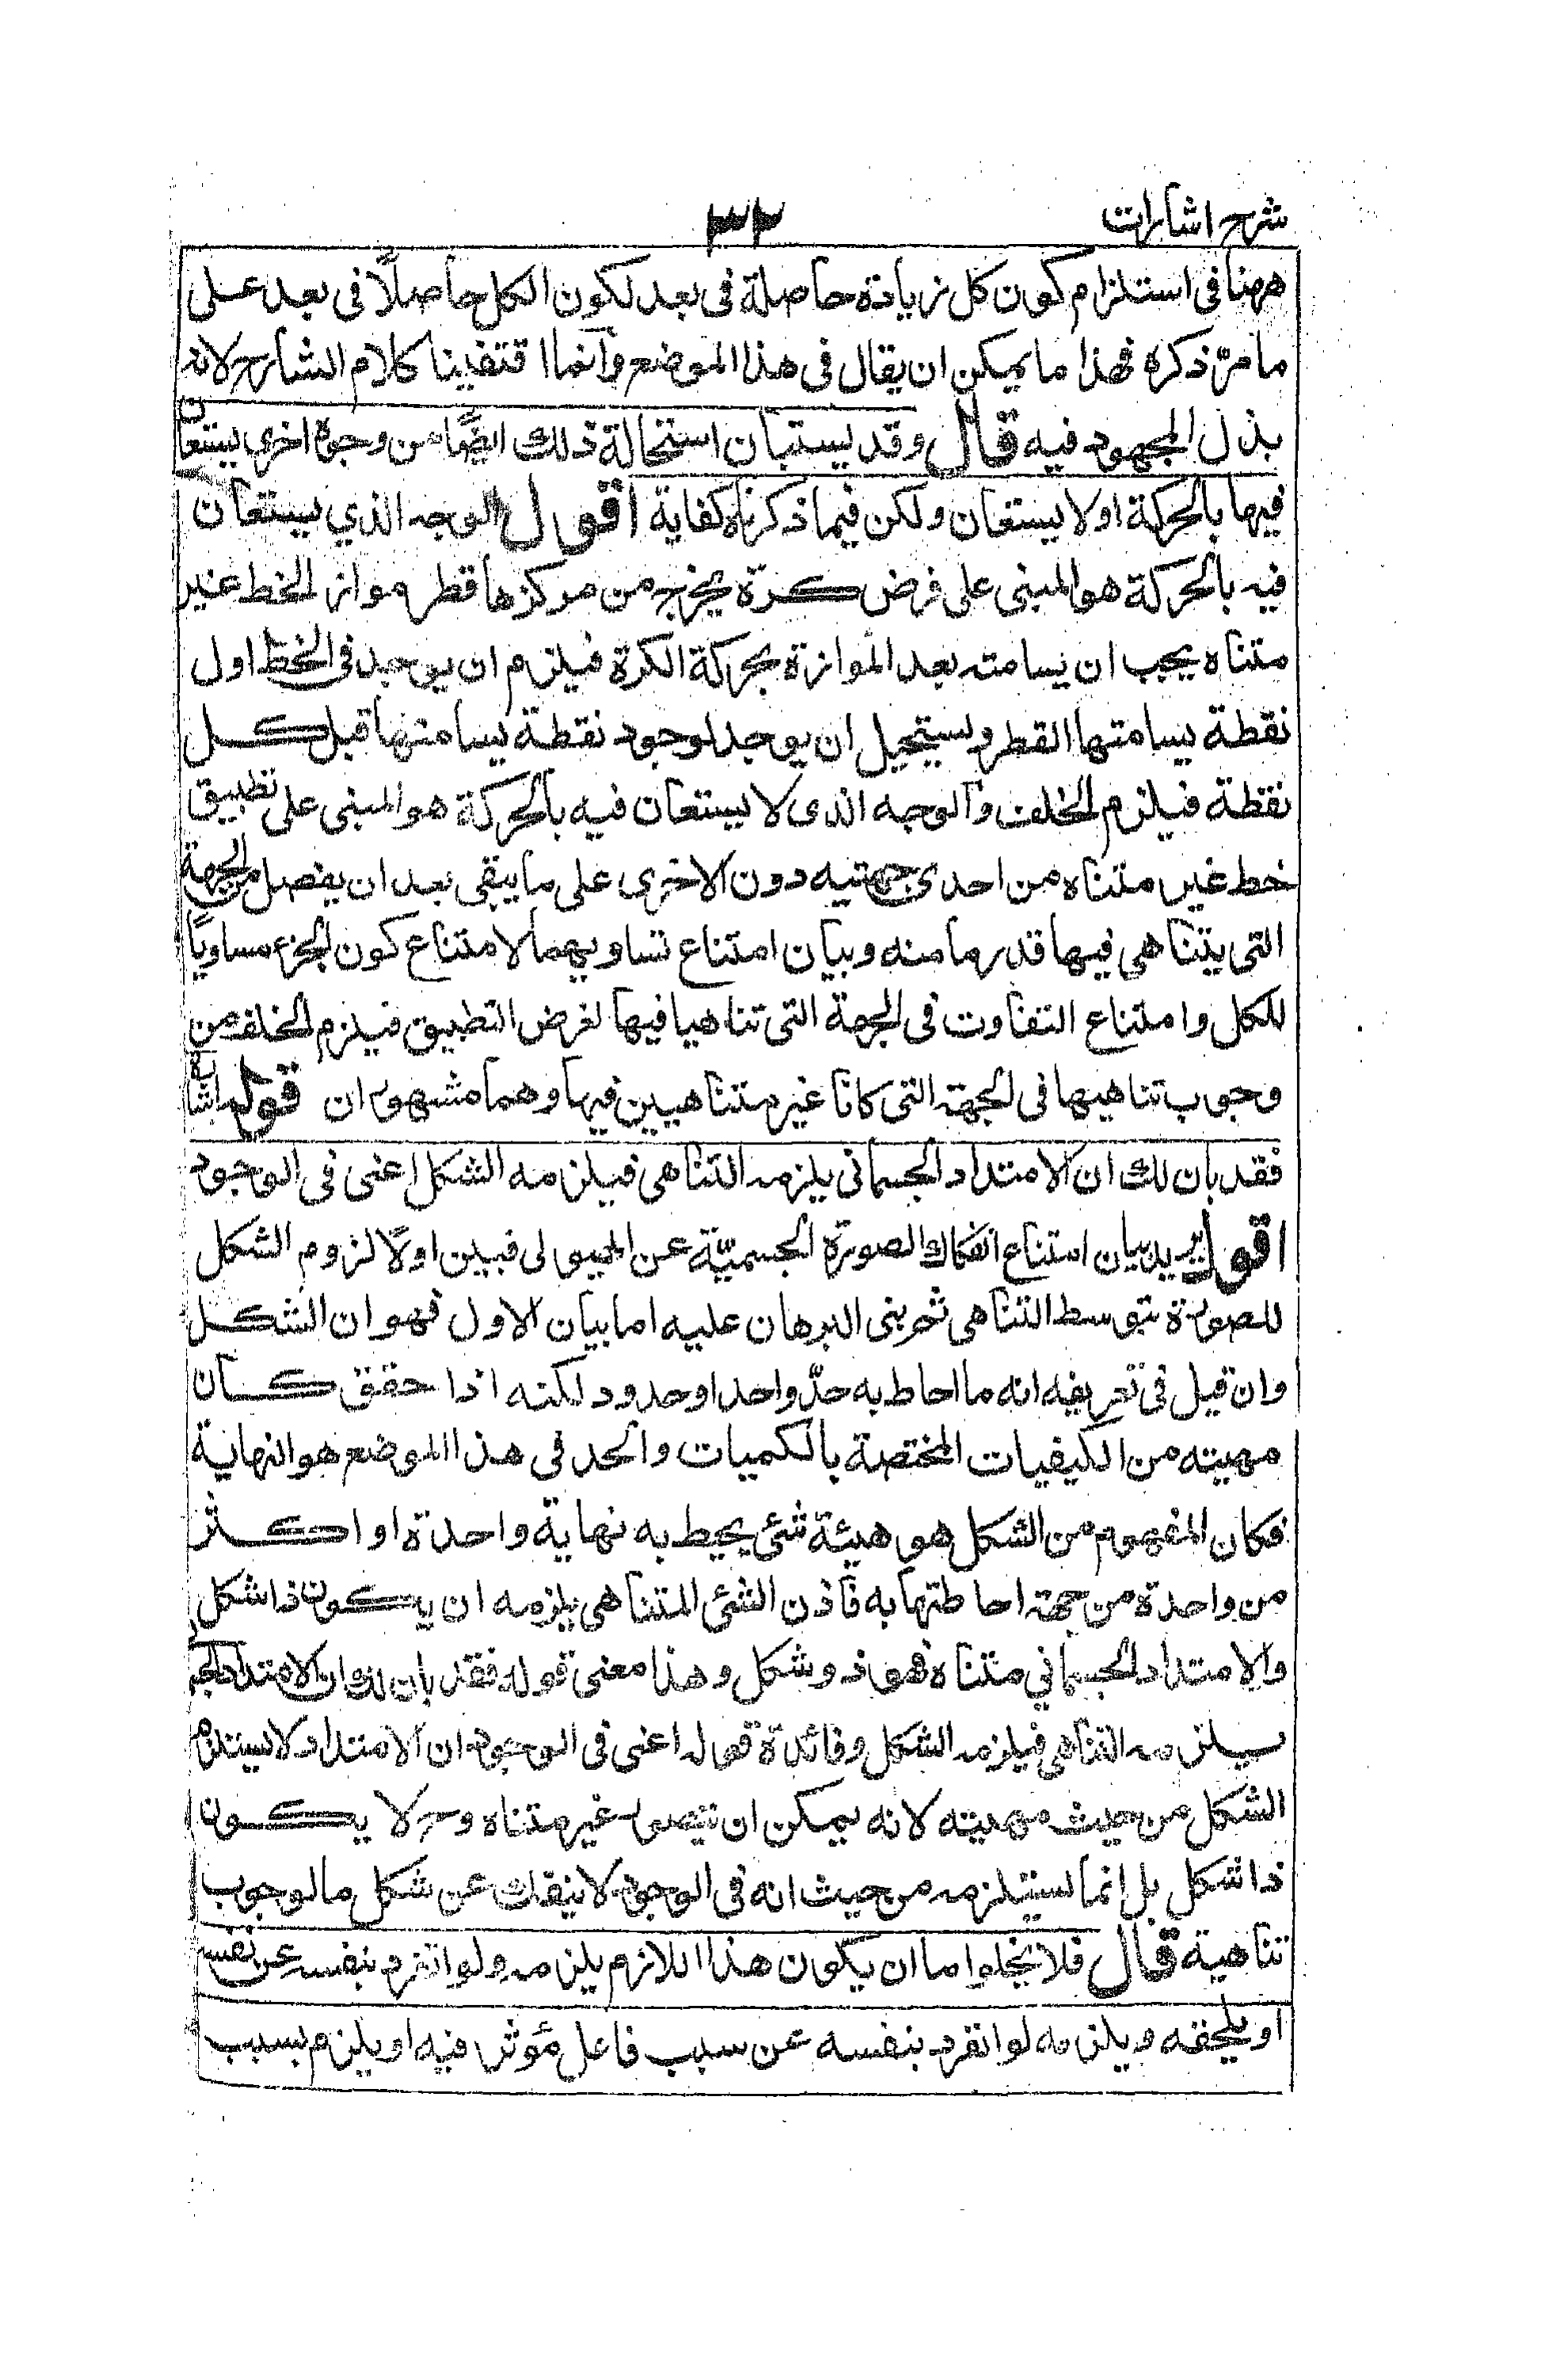 شرح اشارات
٣٢
ههنا فى استلزام كون كل زيادة حاصلة فى بعد لكون الكل حاصلاً فى بعد على
ما مرّ ذكره فهذا ما يمكن ان يقال فى هذا الموضع وانما اقتفينا كلام الشارح لانه
بذل المجهود فيه قال وقد يستبان استحالة ذلك ايضًا من وجوه اخرى يستعان
فيها بالحركة او لا يستعان ولكن فيما ذكرناه كفاية اقول الوجه الذي يستعان
فيه بالحركة هو المبنى على فرض كرة يخرج من مركزها قطر مواز لخط غير
متناه يجب ان يسامته بعد الموازة بحركة الكرة فيلزم ان يوجد فى الخط اول
نقطة يسامتها القطر ويستحيل ان يوجد لوجود نقطة يسامتها قبل كل
نقطة فيلزم الخلف والوجه الذى لا يستعان فيه بالحركة هو المبنى على تطبيق
خط غير متناه من احدى جهتيه دون الاخرى على ما يبقى بعد ان يفصل من الجهة
التى يتناهى فيها قدر ما منه وبيان امتناع تساويهما لامتناع كون الجزء مساويًا
للكل وامتناع التفاوت فى الجهة التى تناهيا فيها لفرض التطبيق فيلزم الخلف من
وجوب تناهيها فى الجهة التى كانا غير متناهيين فيها وهما مشهوران قوله اشارة
فقد بان لك ان الامتداد الجسمانى يلزمه التناهى فيلزمه الشكل اعنى فى الوجود
اقول يريد بيان استناع انفكاك الصورة الجسميّة عن الهيولى فبين اولاً لزوم الشكل
للصورة بتوسط التناهى ثم بنى البرهان عليه اما بيان الاول فهو ان الشكل
وان قيل فى تعريفه انه ما احاط به حدّ واحد او حدود لكنه اذا حقق كان
مهيته من الكيفيات المختصة بالكميات والحد فى هذا الموضع هو النهاية
فكان المفهوم من الشكل هو هيئة شئ يحيط به نهاية واحدة او اكثر
من واحدة من جهة احاطتها به فاذن الشئ المتناهى يلزمه ان يكون ذا شكل
والامتداد الجسماني متناه فهو ذو شكل وهذا معنى قوله فقد بان لك ان الامتداد الجسم
يلزمه التناهى فيلزمه الشكل وفائدة قوله اعنى فى الوجود ان الامتداد لا يستلزم
الشكل من حيث مهيته لانه يمكن ان تتصور غير متناه وح لا يكون
ذا شكل بل انما يستلزمه من حيث انه فى الوجود لا ينفك عن شكل ما لوجوب
تناهية قال فلا يخلوا ما ان يكون هذا اللازم يلزمه ولو انفرد بنفسه عن نفسه
او يلحقه ويلزمه لو انفرد بنفسه عن سبب فاعل مؤثر فيه او يلزم بسبب